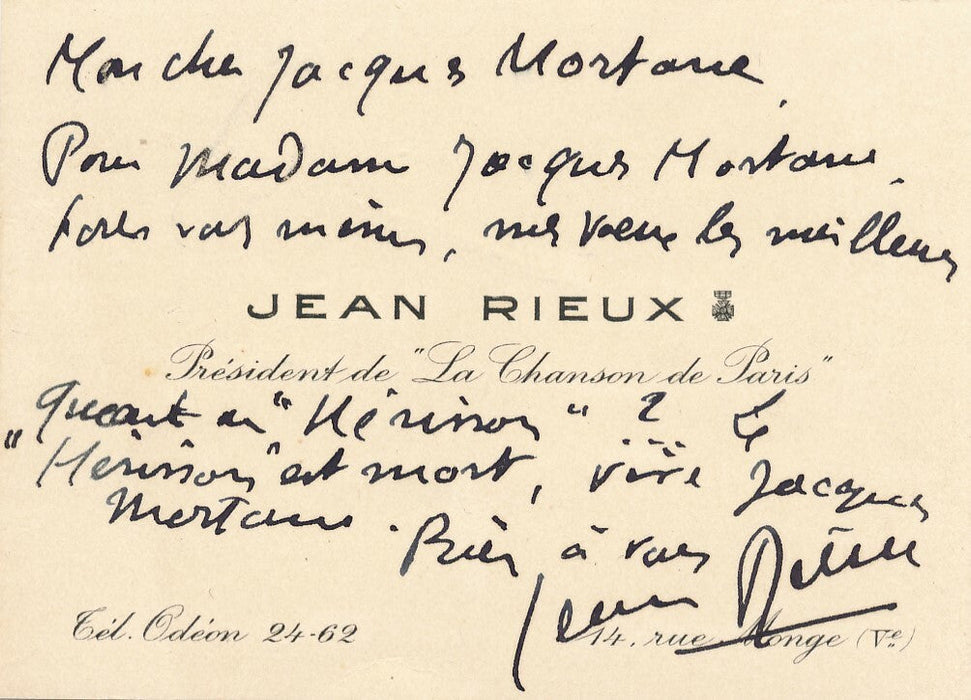 Mon cher Jacques Mortane,
Pour Madame Jacques Mortane,
vous même, mes vœux les meilleurs
JEAN RIEUX
Président de "La Chanson de Paris"
Quant au "Hérisson" ? Le
"Hérisson" est mort, vive Jacques
Mortane. Bien à vous
Jean Rieux
Tél. Odéon 24-62
14, rue Monge (Vᵉ)